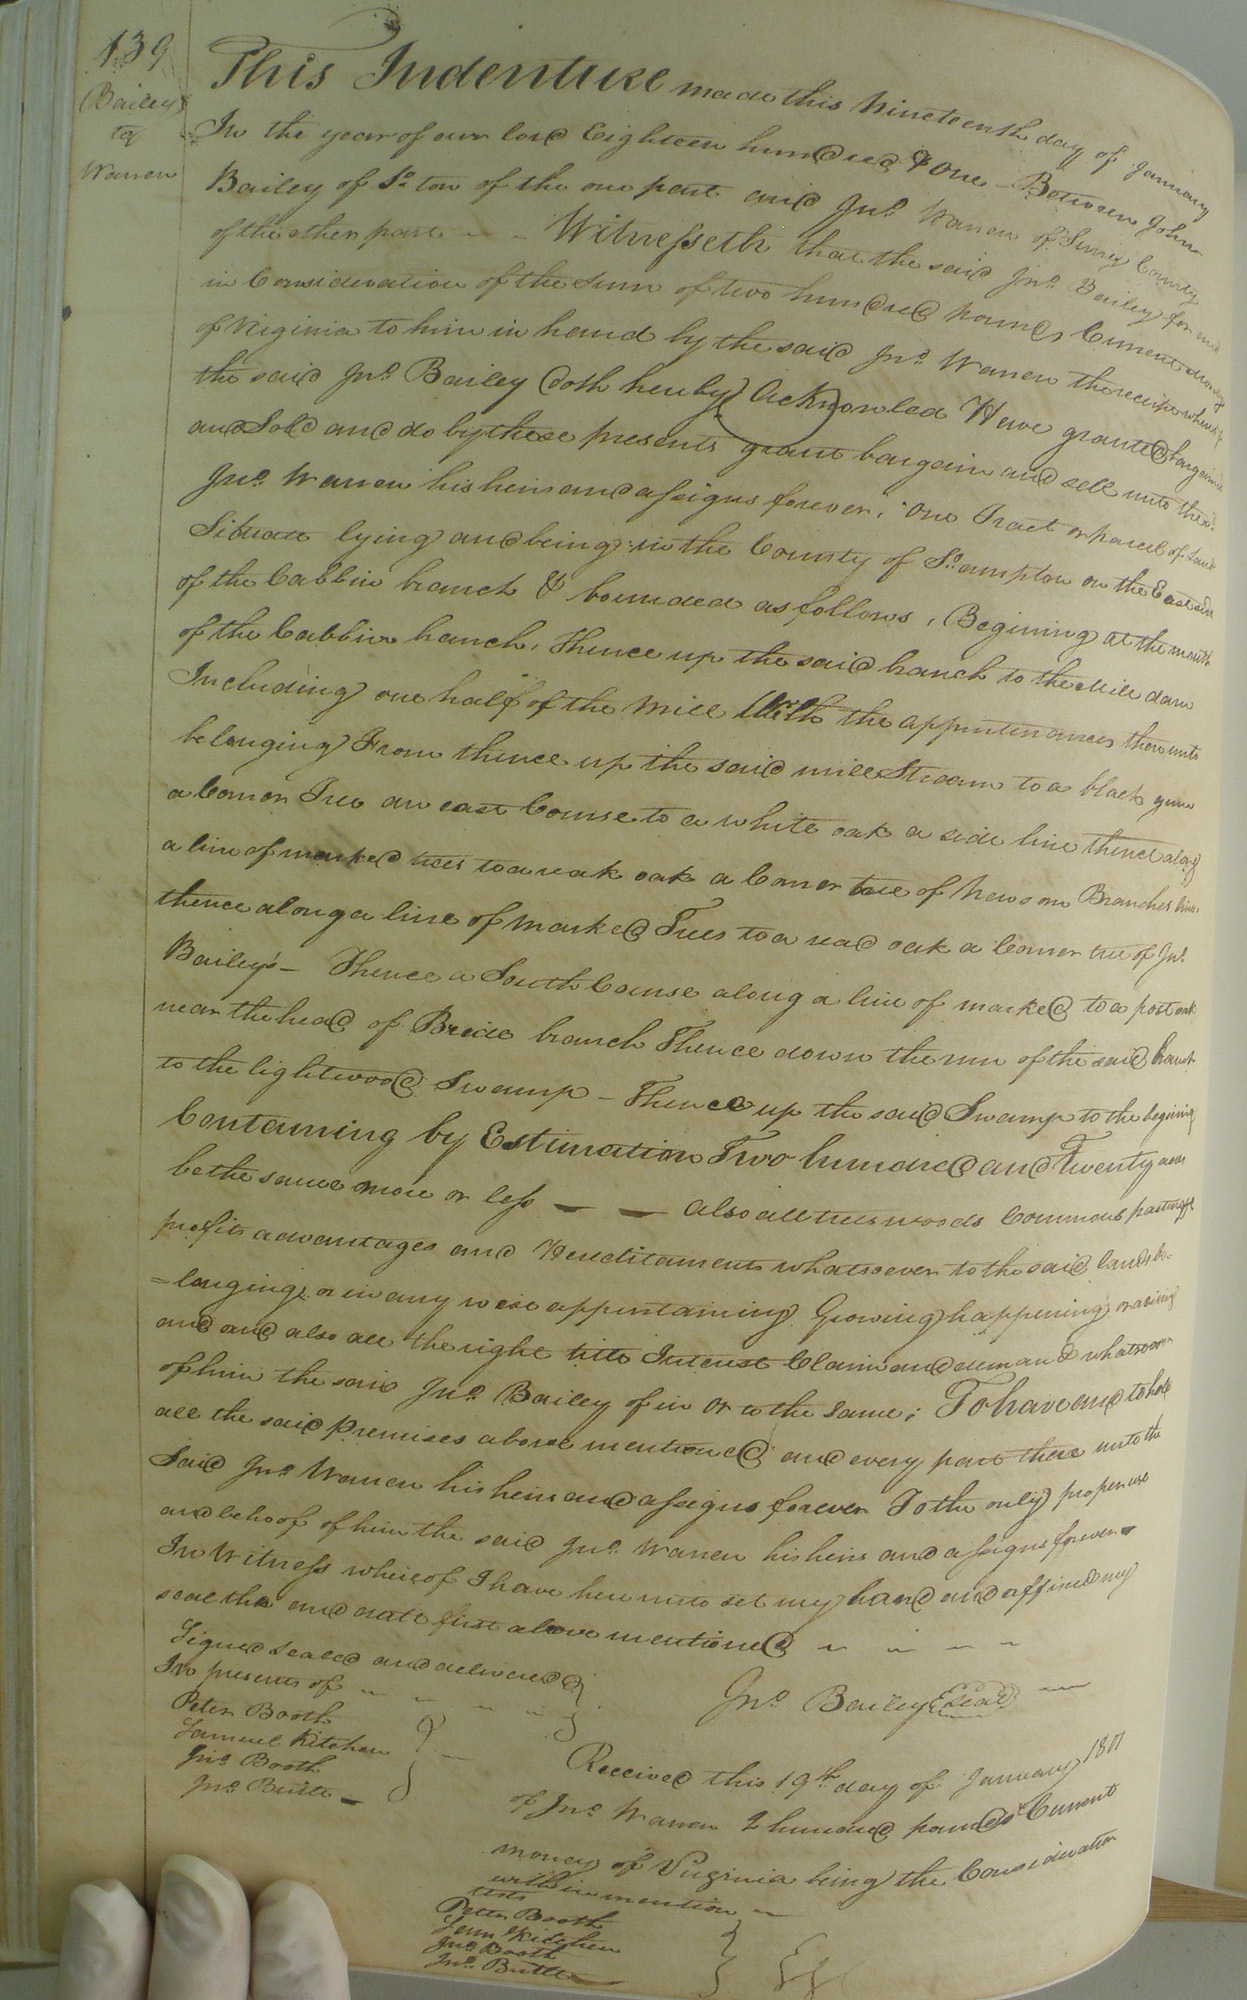 139
Bailey
to
Warren
This Indenture made this Nineteenth day of January
In the year of our lord Eighteen hundred & One - Between John
Bailey of So. ton of the one part and Jno. Warren of Surry County
of the other part - - Witnesseth that the said Jno. Bailey for and
in Consideration of the Sum of two hundred pounds Current money
of Virginia to him in hand by the said Jno. Warren the receipt whereof
the said Jno. Bailey doth hereby Acknowled Have granted bargained
and Sold and do by these presents grant bargain and sell unto the sd.
Jno. Warren his heirs and assigns forever, One Tract or parcel of Land
Situate lying and being in the County of So. ampton on the East side
of the Cabbin branch & bounded as follows, Begining at the mouth
of the Cabbin branch, Thence up the said branch to the Mill dam
Including one half of the Mill With the appurtenances thereunto
belonging From thence up the said mill Stream to a black gum
a Corner Tree an east Course to a white oak a side line thence along
a line of marked trees to a reak oak a Corner tree of Newsom Branches line
thence along a line of marked Trees to a read oak a Corner tree of Jno.
Bailey's - Thence a South Course along a line of marked to a post oak
near the head of Breide branch Thence down the run of the said branch
to the lightwood Swamp - Thence up the said Swamp to the begining
Containing by Estimation Two hundred and Twenty acres
be the same more or less — — also all trees woods Commons pastures
profits advantages and Hereditaments whatsoever to the said lands be-
=longing or in any wise appurtaining Growing happening or arising
and and also all the right title Interest Claim and demand whatsoever
of him the said Jno. Bailey of in or to the same; To have and to hold
all the said premises above mentioned and every part there unto the
Said Jno. Warren his heirs and assigns forever To the only proper use
and behoof of him the said Jno. Warren his heirs and assigns forever
In Witness whereof I have here unto set my hand and affixed my
seal the and date first above mentioned
Signed sealed and delivered
In presents of
Jno. Bailey (seal)
Peter Booth
Samuel Kitchen
Jno. Booth
Jno. Butler
Received this 19th day of January 1801
of Jno. Warren 2 hundred pounds Current
money of Virginia being the Consideration
within mention
teste
Peter Booth
Sam Kitchen
Jno. Booth
Jno. Butler